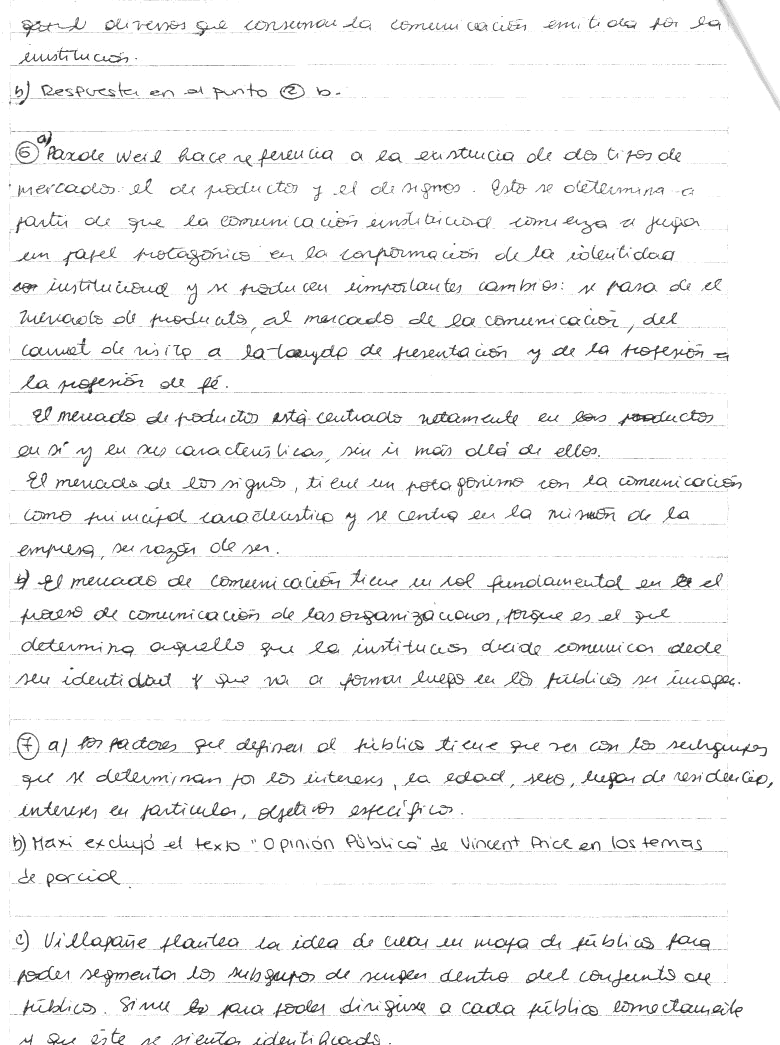 diversos que consuman la comunicación emitida por la
institución.
b) Respuesta en el punto ② b.
⑥ a) Pascale Weil hace referencia a la existencia de dos tipos de
mercados: el de productos y el de signos. Esto se determina a
partir de que la comunicación institucional comienza a jugar
un papel protagónico en la conformación de la identidad
institucional y se producen importantes cambios: se pasa de el
mercado de producto, al mercado de la comunicación, del
carnet de visita a la tarjeta de presentación y de la profesión a
la profesión de fé.
El mercado de productos está centrado netamente en los productos
en sí y en sus características, sin ir más allá de ellos.
El mercado de los signos, tiene un protagonismo con la comunicación
como principal característica y se centra en la misión de la
empresa, su razón de ser.
b) El mercado de comunicación tiene un rol fundamental en el
proceso de comunicación de las organizaciones, porque es el que
determina aquello que la institución decide comunicar dede
su identidad y que va a formar luego en los públicos su imagen.
⑦ a) Los factores que definen al público tiene que ver con los subgrupos
que se determinan por los intereses, la edad, sexo, lugar de residencia,
intereses en particular, objetivos específicos.
b) Maxi excluyó el texto "Opinión Pública" de Vincent Price en los temas
de parcial.
c) Villafañe plantea la idea de crear un mapa de públicos para
poder segmentar los subgrupos de surgen dentro del conjunto de
públicos. Sirve para poder dirigirse a cada público correctamente
y que éste se sienta identificado.